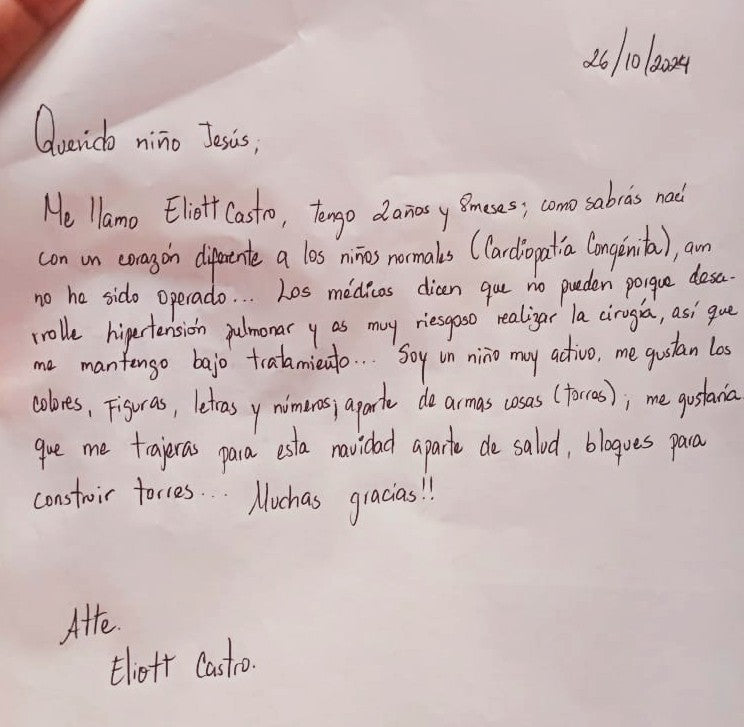 26/10/2024
Querido niño Jesús;
Me llamo Eliott Castro, Tengo 2 años y 8 meses; como sabrás nací
con un corazón diferente a los niños normales (Cardiopatía Congénita), aun
no he sido operado... Los médicos dicen que no pueden porque desa-
rrolle hipertensión pulmonar y es muy riesgoso realizar la cirugía, así que
me mantengo bajo tratamiento... Soy un niño muy activo, me gustan los
colores, Figuras, letras y números; aparte de armas cosas (torres); me gustaría
que me trajeras para esta navidad aparte de salud, bloques para
construir torres... Muchas gracias!!
Atte.
Eliott Castro.